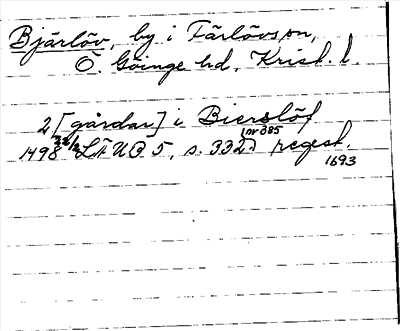 Bjärlöv, by i Färlövs sn,
Ö. Göinge hd, Krist. l.
2 [gårdar] i Bierslöf
(nr 385)
1498 22/2 LÄUB 5, s. 332. regest.
1693